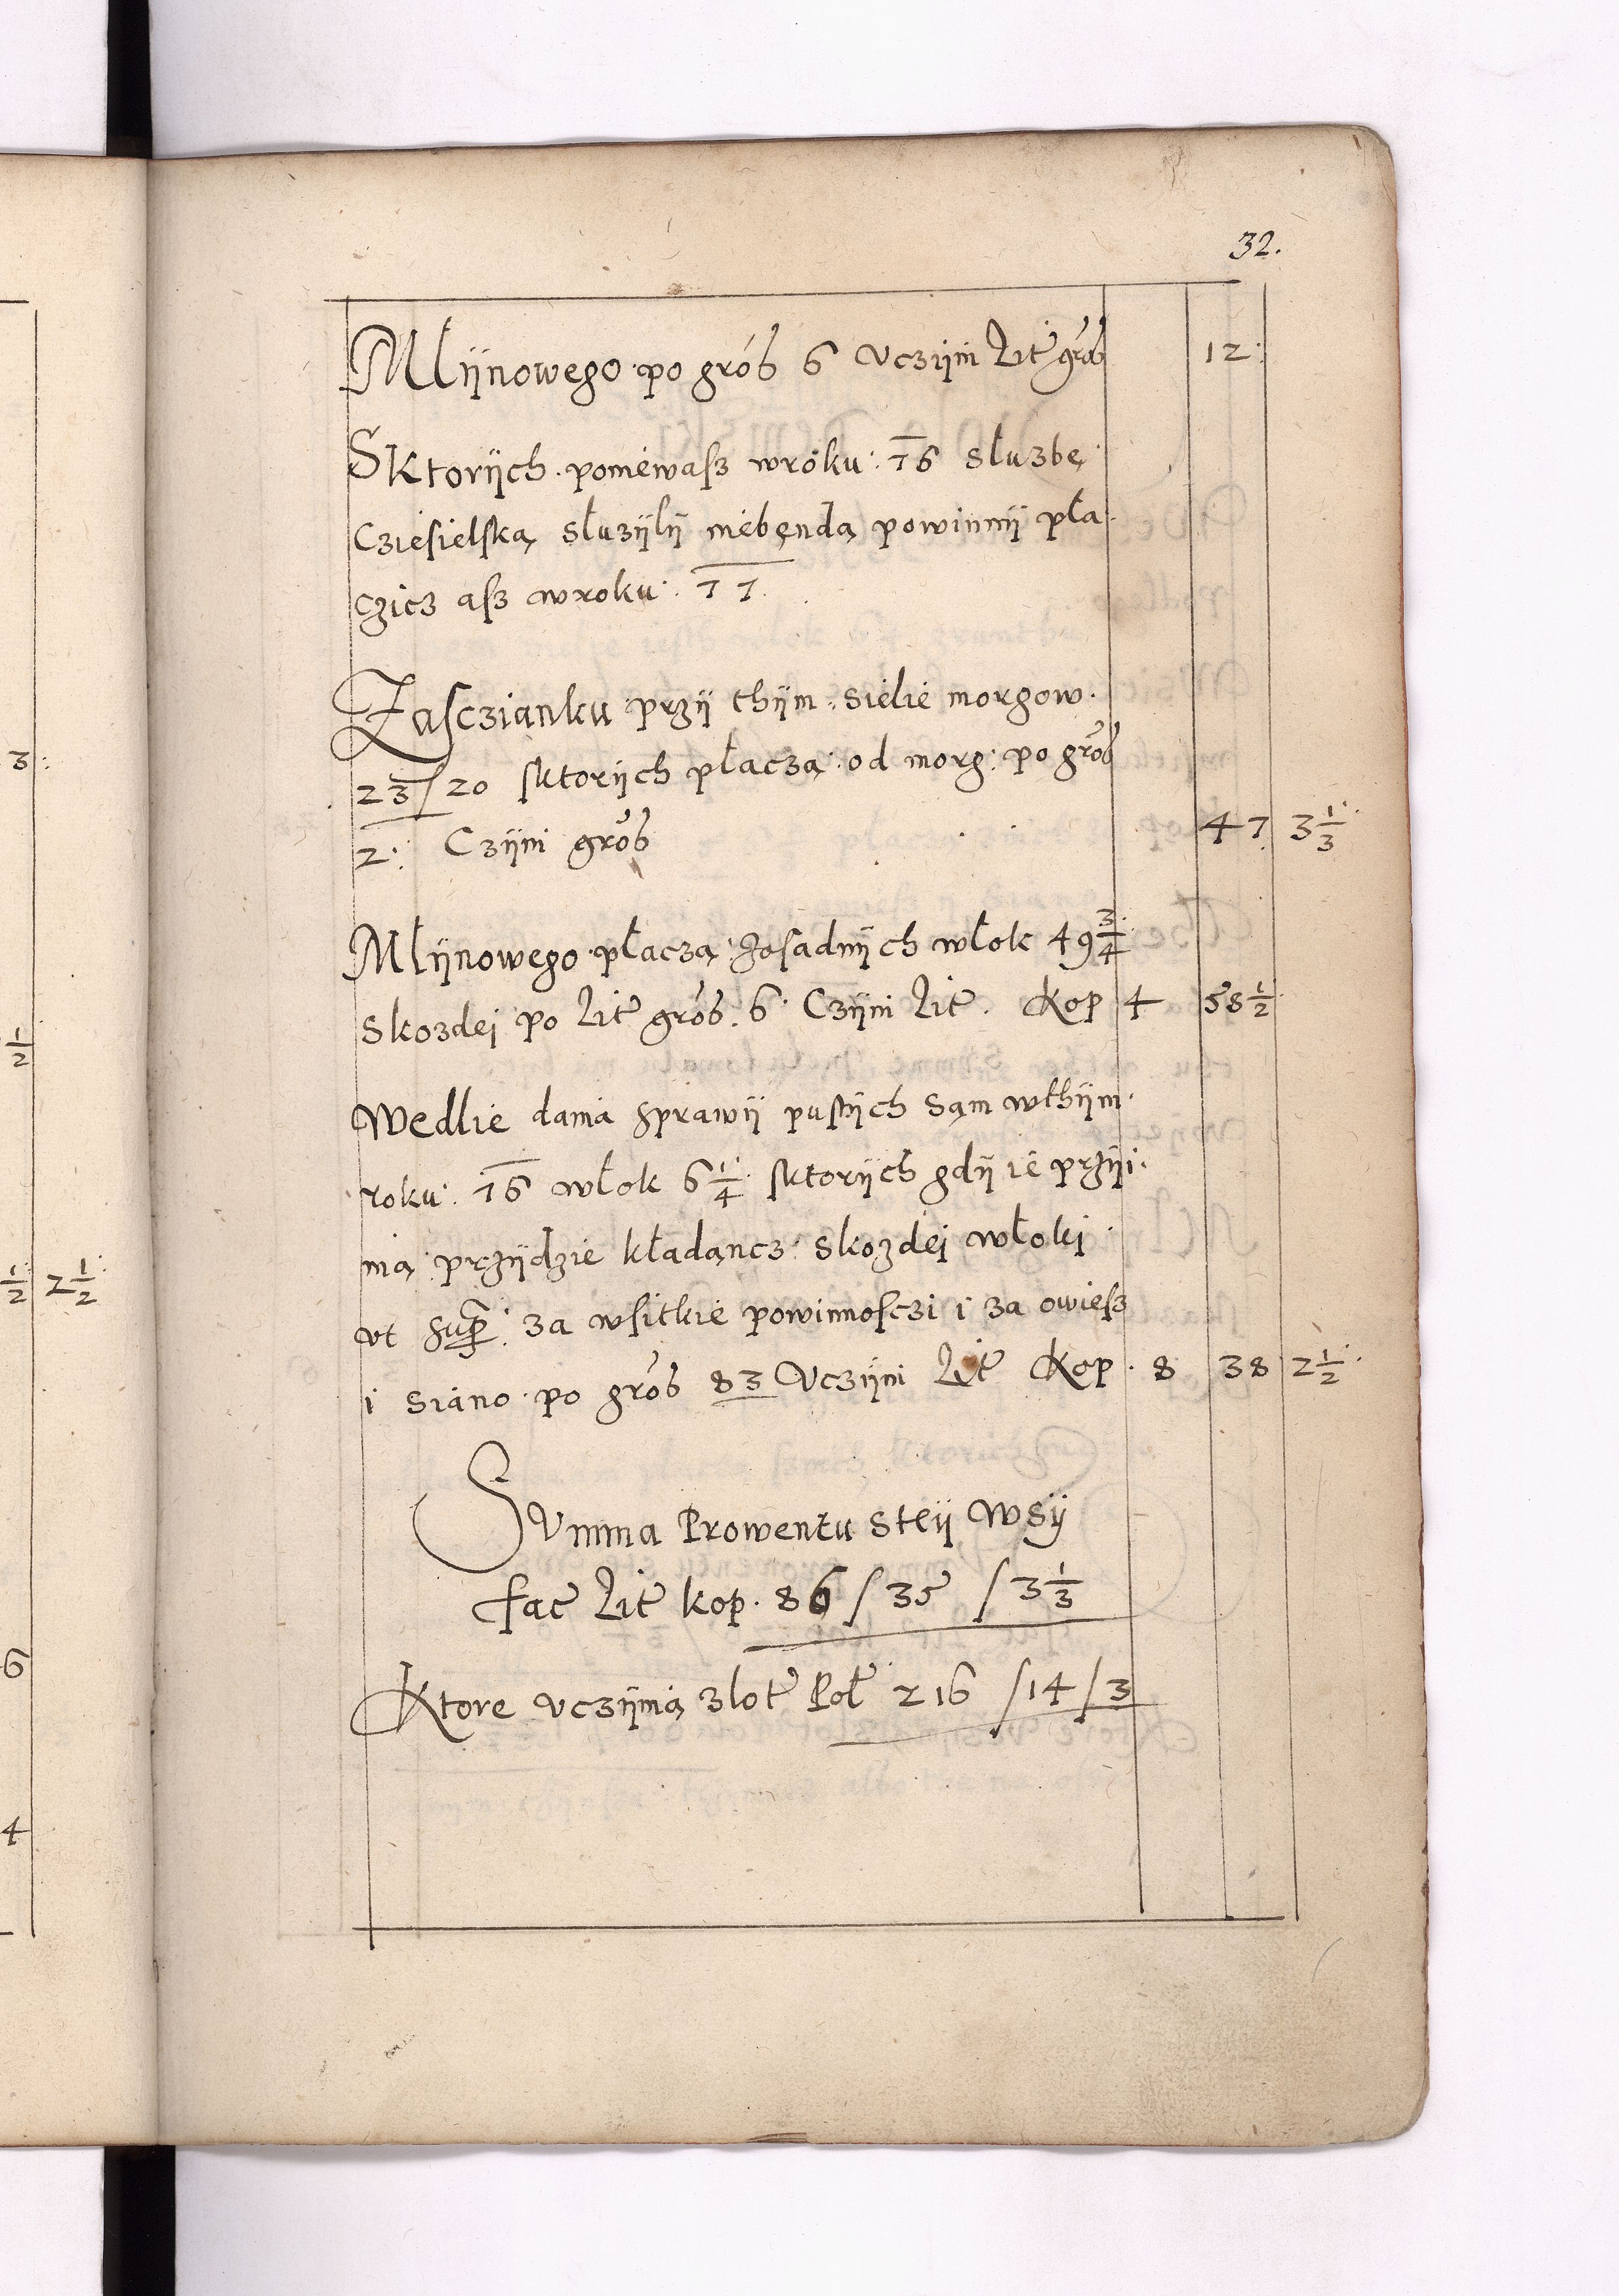 32.
Młÿnowego po grosz 6 Uczÿni Lit grosz 12
Sktorÿch poniewasz wroku 76 słuzbę
Cziesielską słuzÿlÿ niebendą powinnÿ pła
czicz asz wroku 77
Zasczianku przÿ thÿm sielie morgow
23/20 sktorÿch płaczą od morg: po grosz
2: Czÿni grosz 47 3 1/3
Młÿnowego płaczą zosadnÿch włok 49 3/4
Skozdei po Lit grosz 6 Czÿni Lit Kop 4 58 1/2
Wedlie dania sprawÿ pustÿch Sąm wthÿm
roku 76 włok 6 1/4 sktorÿch gdÿ ie przÿi
mą przÿdzie kładąncz skozdei włoki
ut sup: za wsitkie powinnosczi i za owiesz
i siano po grosz 83 Uczÿni Lit Kop 8 38 2 1/2
Summa Prowentu steÿ Wsÿ
fac Lit kop. 86 / 35 / 3 1/3
Ktore uczÿnią złot Pol 216 / 14 / 3
3:
1/2
1/2 2 1/2
6
4